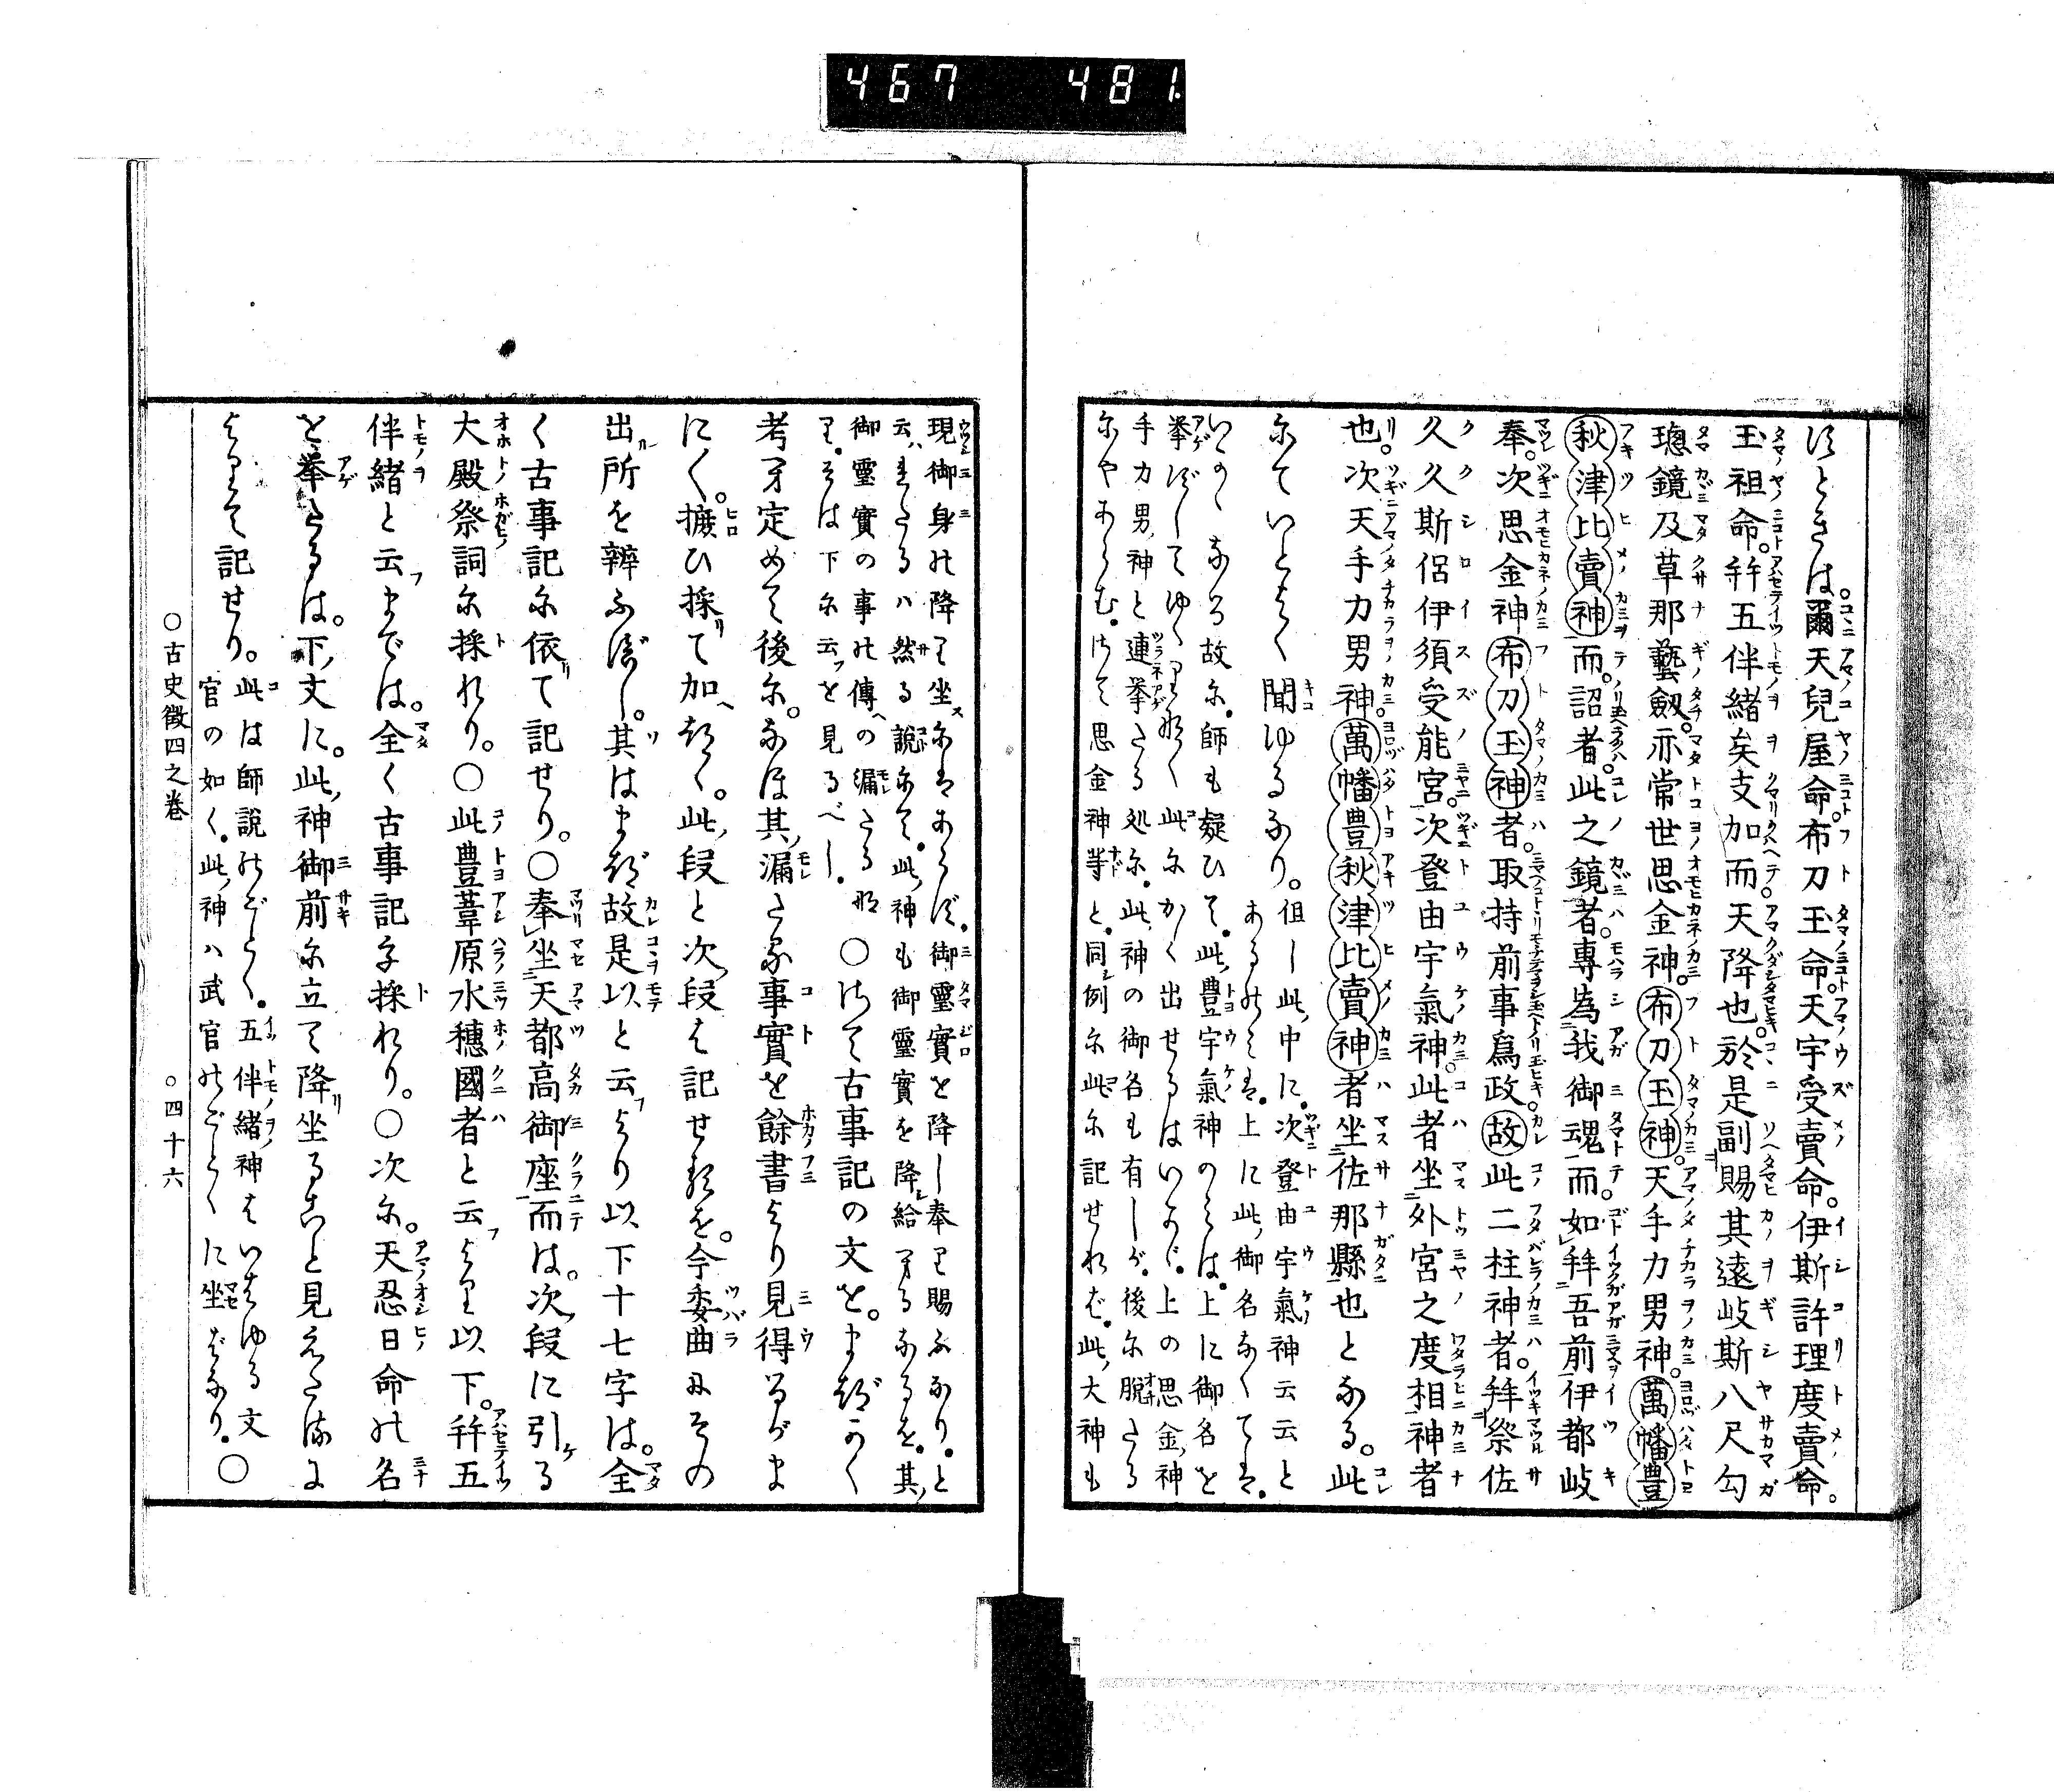 467 481
ほときは。爾天兒屋命。布刀玉命。天宇受賣命。伊斯許理度賣命。
玉祖命。并五伴緒矣支加而。天降也。於是副賜其遠岐斯八尺勾
璁鏡及草那藝劔。亦常世思金神。布刀玉神。天手力男神。萬幡豊
秋津比賣神而。詔者。此之鏡者。專為我御魂而。如拜吾前伊都岐
奉。次思金神布刀玉神者。取持前事爲政。故此二柱神者。拜祭佐
久久斯侶伊須受能宮。次登由宇氣神。此者坐外宮之度相神者
也。次天手力男神。萬幡豊秋津比賣神者坐佐那縣也となる。此
にていとよく聞ゆるなり。但し此中に。次登由宇氣神云云と
あるのみは。上に此御名なくては。
いかゞなる故に。師も疑ひて。此豊宇氣神のみは。上に御名を
擧ずしてゆくりなく此にかく出せるはいかゞ。上の思金神
手力男神と連擧たる処に。此神の御名も有しが。後に脱たる
にやあらむ。さて思金神等と。同例に此に記せれば。此大神も
現御身の降り坐にはあらず。御靈實を降し奉り賜ふなり。と
云れたるハ然る説にて。此神も御靈實を降給へるなるを。其
御靈實の事の傳の漏たるなり。そは下に云を見るべし。
○さて古事記の文を。まづかく
考へ定めて後に。なほ其漏たる事實を餘書より見得るがま
にく。擴ひ採て加へつ。此段と次段は記せるを。今委曲にその
出所を辨ふべし。其はまづ故是以と云より以下十七字は。全
く古事記に依て記せり。○奉坐天都高御座而は。次段に引る
大殿祭詞に採れり。○此豊葦原水穂國者と云より以下。并五
伴緒と云までは。全く古事記を採れり。○次に。天忍日命の名
を擧たるは。下文に。此神御前に立て降坐ること見えたるに
よりて記せり。此は師説のごとく。五伴緒神はいはゆる文
官の如く。此神ハ武官のごとくに坐ばなり。○
○古史徴四之巻 ○四十六